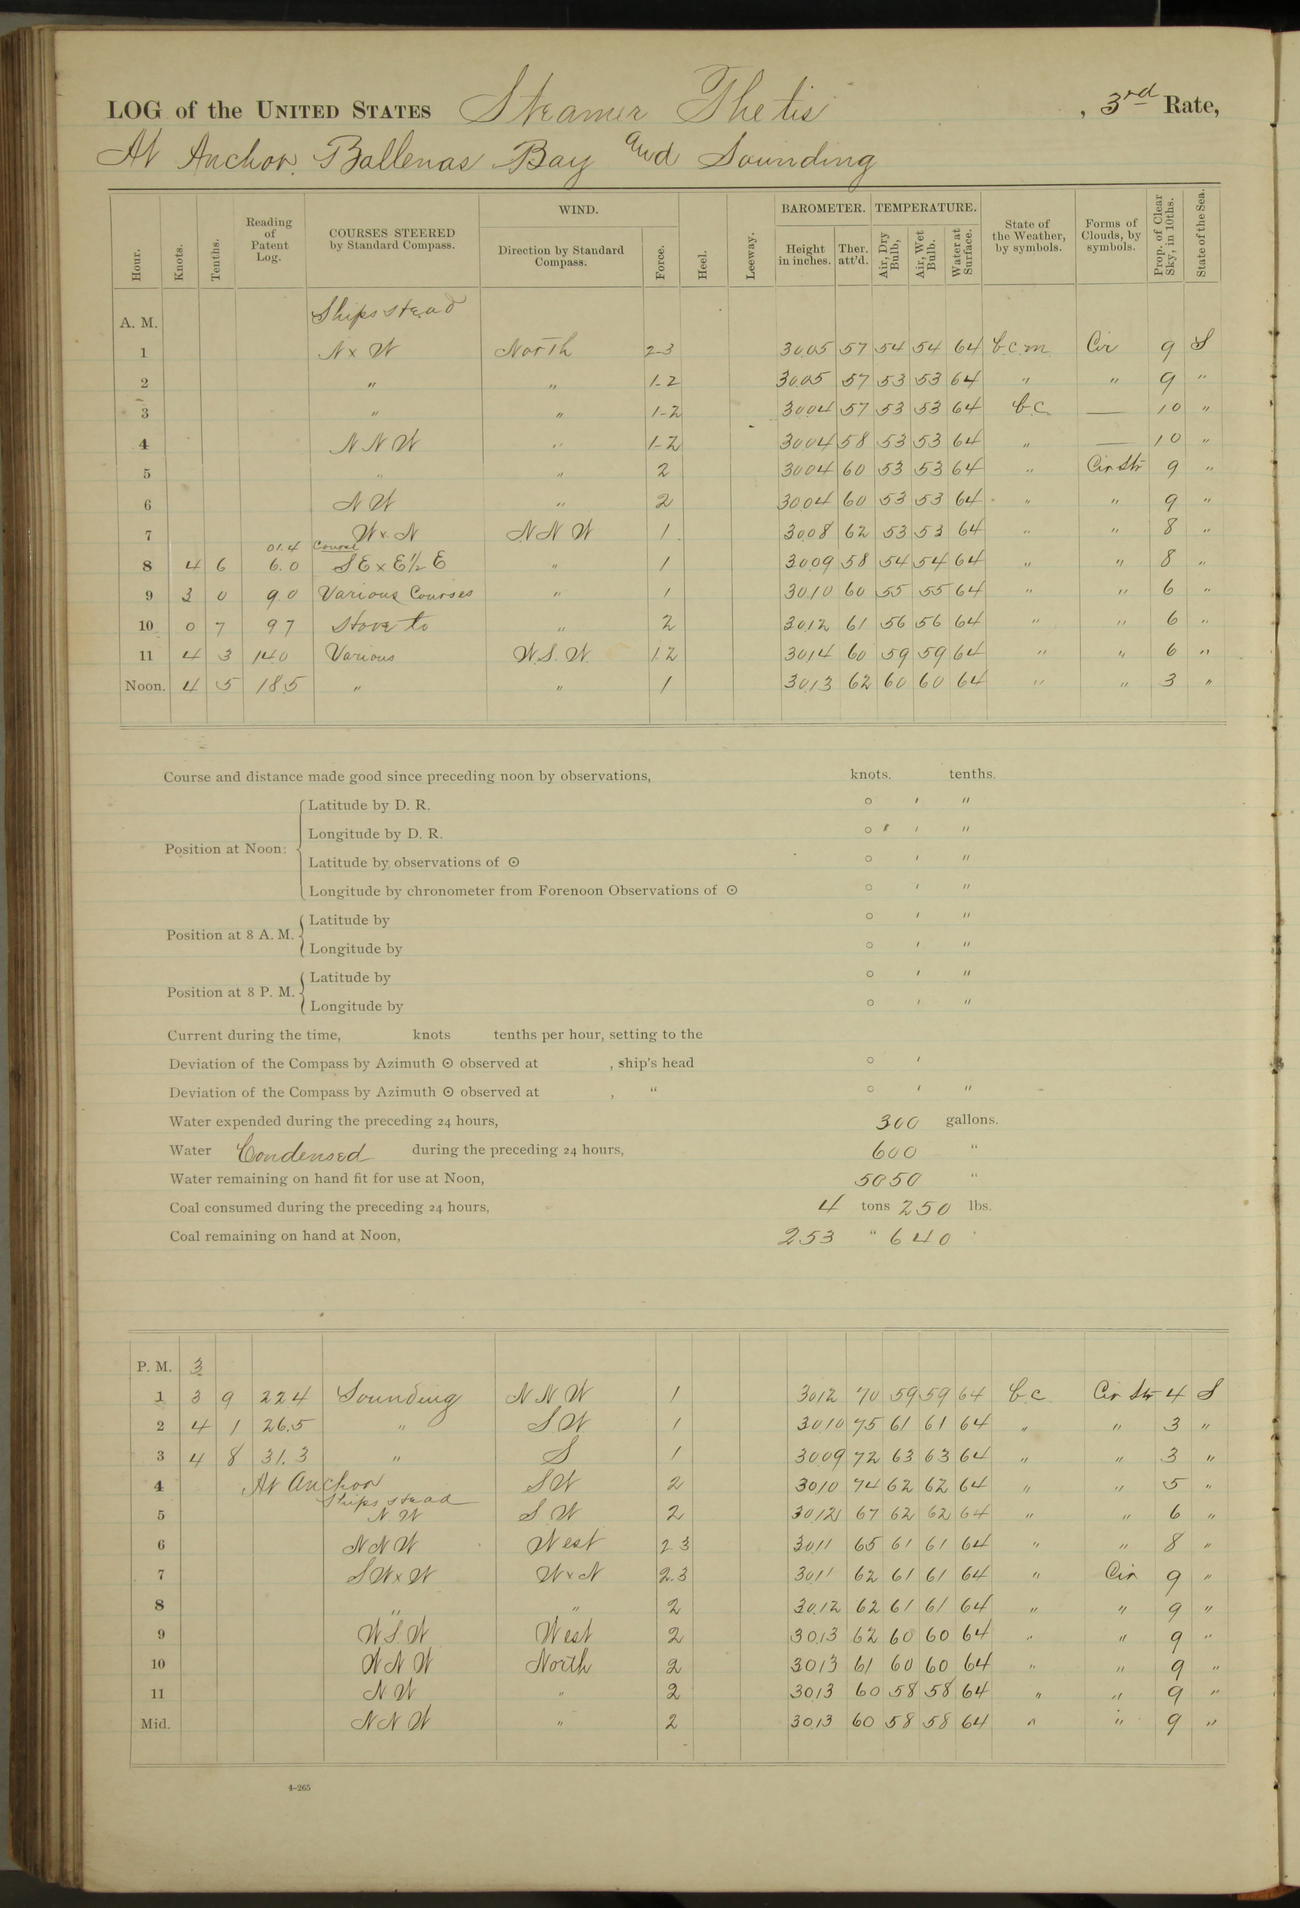 LOG of the UNITED STATES Steamer Thetis , 3rd Rate,
At Anchor. Ballenas Bay and Sounding
Hour. Knots. Tenths. Reading of Patent Log. COURSES STEERED by Standard Compass. WIND. Direction by Standard Compass. Force. Heel. Leeway. BAROMETER. Height in inches. Ther. att'd. TEMPERATURE. Air, Dry Bulb, Air, Wet Bulb. Water at Surface. State of the Weather, by symbols. Forms of Clouds, by symbols. Prop. of Clear Sky, in 10ths. State of the Sea.
A. M. Ships stead
1 N x W North 2-3 30.05 57 54 54 64 b.c.m. Cir 9 S
2 " " 1-2 30.05 57 53 53 64 " " 9 "
3 " " 1-2 30.04 57 53 53 64 b.c. — 10 "
4 N N W " 1-2 30.04 58 53 53 64 " — 10 "
5 " " 2 30.04 60 53 53 64 " Cir Str 9 "
6 N W " 2 30.04 60 53 53 64 " " 9 "
7 W x N N N W 1 30.08 62 53 53 64 " " 8 "
01.4 Course
8 4 6 6.0 S E x E 1/2 E " 1 30.09 58 54 54 64 " " 8 "
9 3 0 9.0 Various Courses " 1 30.10 60 55 55 64 " " 6 "
10 0 7 9.7 Hove to " 2 30.12 61 56 56 64 " " 6 "
11 4 3 14.0 Various W.S.W. 1.2 30.14 60 59 59 64 " " 6 "
Noon. 4 5 18.5 " " 1 30.13 62 60 60 64 " " 3 "
Course and distance made good since preceding noon by observations, knots. tenths.
Position at Noon:
Latitude by D. R. ° ′ ″
Longitude by D. R. ° ′ ″
Latitude by observations of ☉ ° ′ ″
Longitude by chronometer from Forenoon Observations of ☉ ° ′ ″
Position at 8 A. M.
Latitude by ° ′ ″
Longitude by ° ′ ″
Position at 8 P. M.
Latitude by ° ′ ″
Longitude by ° ′ ″
Current during the time, knots tenths per hour, setting to the
Deviation of the Compass by Azimuth ☉ observed at , ship's head ° ′
Deviation of the Compass by Azimuth ☉ observed at , " ° ′ ″
Water expended during the preceding 24 hours, 300 gallons.
Water Condensed during the preceding 24 hours, 600 "
Water remaining on hand fit for use at Noon, 5050 "
Coal consumed during the preceding 24 hours, 4 tons 250 lbs.
Coal remaining on hand at Noon, 253 " 640 "
P. M. 3
1 3 9 22.4 Sounding N N W 1 30.12 70 59 59 64 b.c. Cir Str 4 S
2 4 1 26.5 " S W 1 30.10 75 61 61 64 " " 3 "
3 4 8 31.3 " S 1 30.09 72 63 63 64 " " 3 "
4 At Anchor S W 2 30.10 74 62 62 64 " " 5 "
Ships stead
5 N W S W 2 30.12 67 62 62 64 " " 6 "
6 N N W West 2.3 30.11 65 61 61 64 " " 8 "
7 S W x W W x N 2.3 30.11 62 61 61 64 " Cir 9 "
8 " " 2 30.12 62 61 61 64 " " 9 "
9 W S W West 2 30.13 62 60 60 64 " " 9 "
10 W N W North 2 30.13 61 60 60 64 " " 9 "
11 N W " 2 30.13 60 58 58 64 " " 9 "
Mid. N N W " 2 30.13 60 58 58 64 " " 9 "
4-265